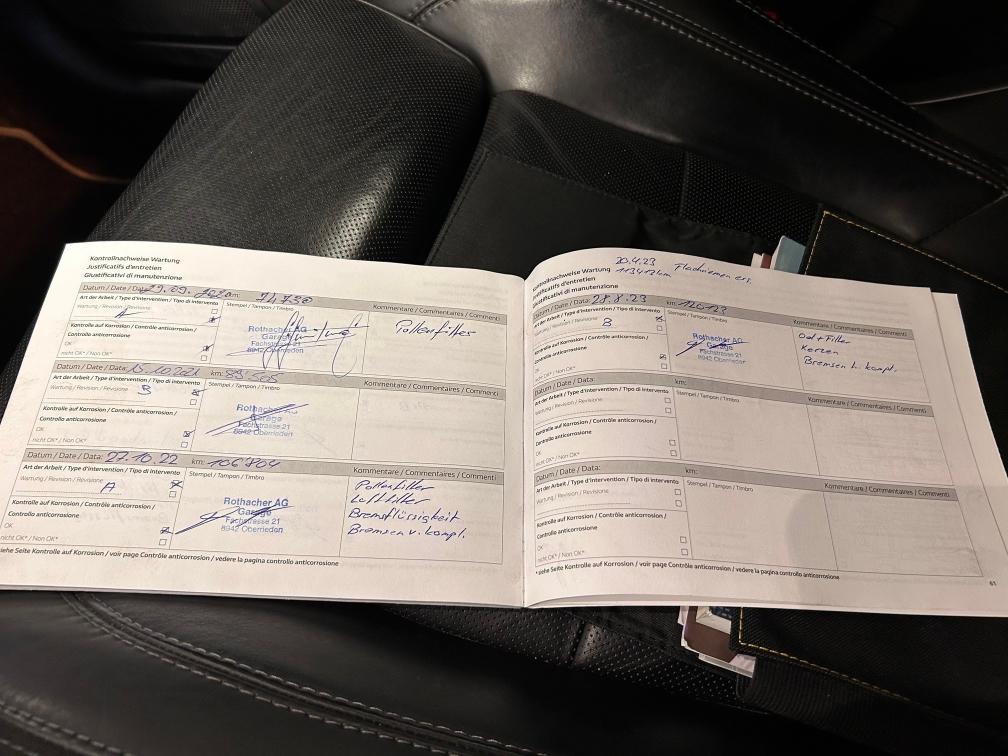 Kontrollnachweise Wartung
Justificatifs d'entretien
Giustificativi di manutenzione
Datum / Date / Data: 29.09.2020 km: 74730
Art der Arbeit / Type d'intervention / Tipo di intervento
Stempel / Tampon / Timbro
Kommentare / Commentaires / Commenti
Wartung / Revision / Revisione
A
Pollenfilter
Kontrolle auf Korrosion / Contrôle anticorrosion /
Controllo anticorrosione
OK
nicht OK* / Non OK*
Rothacher AG
Garage
Fachstrasse 21
8942 Oberrieden
Datum / Date / Data: 15.10.221 km:
Kommentare / Commentaires / Commenti
Art der Arbeit / Type d'intervention / Tipo di intervento
Stempel / Tampon / Timbro
Wartung / Revision / Revisione
B
Kontrolle auf Korrosion / Contrôle anticorrosion /
Controllo anticorrosione
OK
nicht OK* / Non OK*
Rothacher AG
Garage
Fachstrasse 21
8942 Oberrieden
Datum / Date / Data: 27.10.22 km: 106804
Kommentare / Commentaires / Commenti
Art der Arbeit / Type d'intervention / Tipo di intervento
Stempel / Tampon / Timbro
Wartung / Revision / Revisione
A
Kontrolle auf Korrosion / Contrôle anticorrosion /
Controllo anticorrosione
OK
nicht OK* / Non OK*
Rothacher AG
Garage
Fachstrasse 21
8942 Oberrieden
Pollenfilter
Luftfilter
Bremsflüssigkeit
Bremsen v. kompl.
*siehe Seite Kontrolle auf Korrosion / voir page Contrôle anticorrosion / vedere la pagina controllo anticorrosione
20.4.23
113412km Flachriemen ers.
Kontrollnachweise Wartung
Justificatifs d'entretien
Giustificativi di manutenzione
Datum / Date / Data: 28.8.23 km:
Art der Arbeit / Type d'intervention / Tipo di intervento
Stempel / Tampon / Timbro
Kommentare / Commentaires / Commenti
Wartung / Revision / Revisione
B
Kontrolle auf Korrosion / Contrôle anticorrosion /
Controllo anticorrosione
OK
nicht OK* / Non OK*
Rothacher AG
Garage
Fachstrasse 21
8942 Oberrieden
Oel + Filter
Kerzen
Bremsen h. kompl.
Datum / Date / Data: km:
Art der Arbeit / Type d'intervention / Tipo di intervento
Stempel / Tampon / Timbro
Kommentare / Commentaires / Commenti
Wartung / Revision / Revisione
Kontrolle auf Korrosion / Contrôle anticorrosion /
Controllo anticorrosione
OK
nicht OK* / Non OK*
Datum / Date / Data: km:
Art der Arbeit / Type d'intervention / Tipo di intervento
Stempel / Tampon / Timbro
Kommentare / Commentaires / Commenti
Wartung / Revision / Revisione
Kontrolle auf Korrosion / Contrôle anticorrosion /
Controllo anticorrosione
OK
nicht OK* / Non OK*
* siehe Seite Kontrolle auf Korrosion / voir page Contrôle anticorrosion / vedere la pagina controllo anticorrosione
61